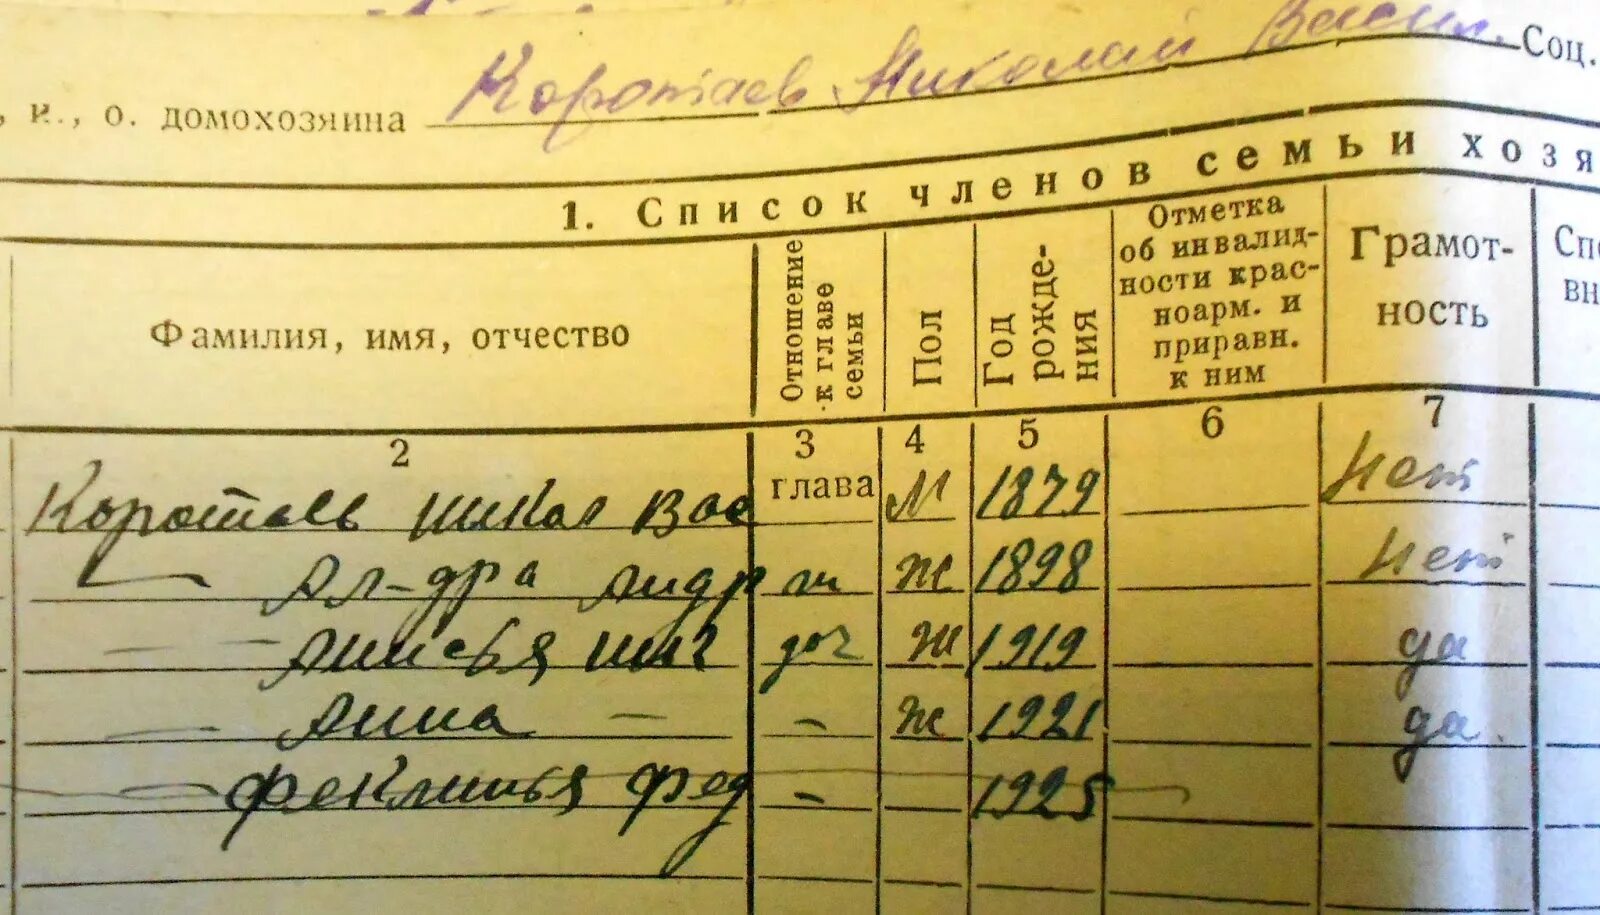 Коротаев Николай Васил. Соц.
, и., о. домохозяина
1. Список членов семьи хозя
Фамилия, имя, отчество
Отношение
к главе
семьи
Пол
Год
рожде-
ния
Отметка
об инвалид-
ности крас-
ноарм. и
приравн.
к ним
Грамот-
ность
Спе
вн
2 3 4 5 6 7
Коротаев Никол Вас глава М 1879 Нет
— Ал-дра Андр ж Ж 1898 Нет
— — Анисья Ник доч Ж 1919 да
— Анна — - Ж 1921 да.
— Фед - 1925